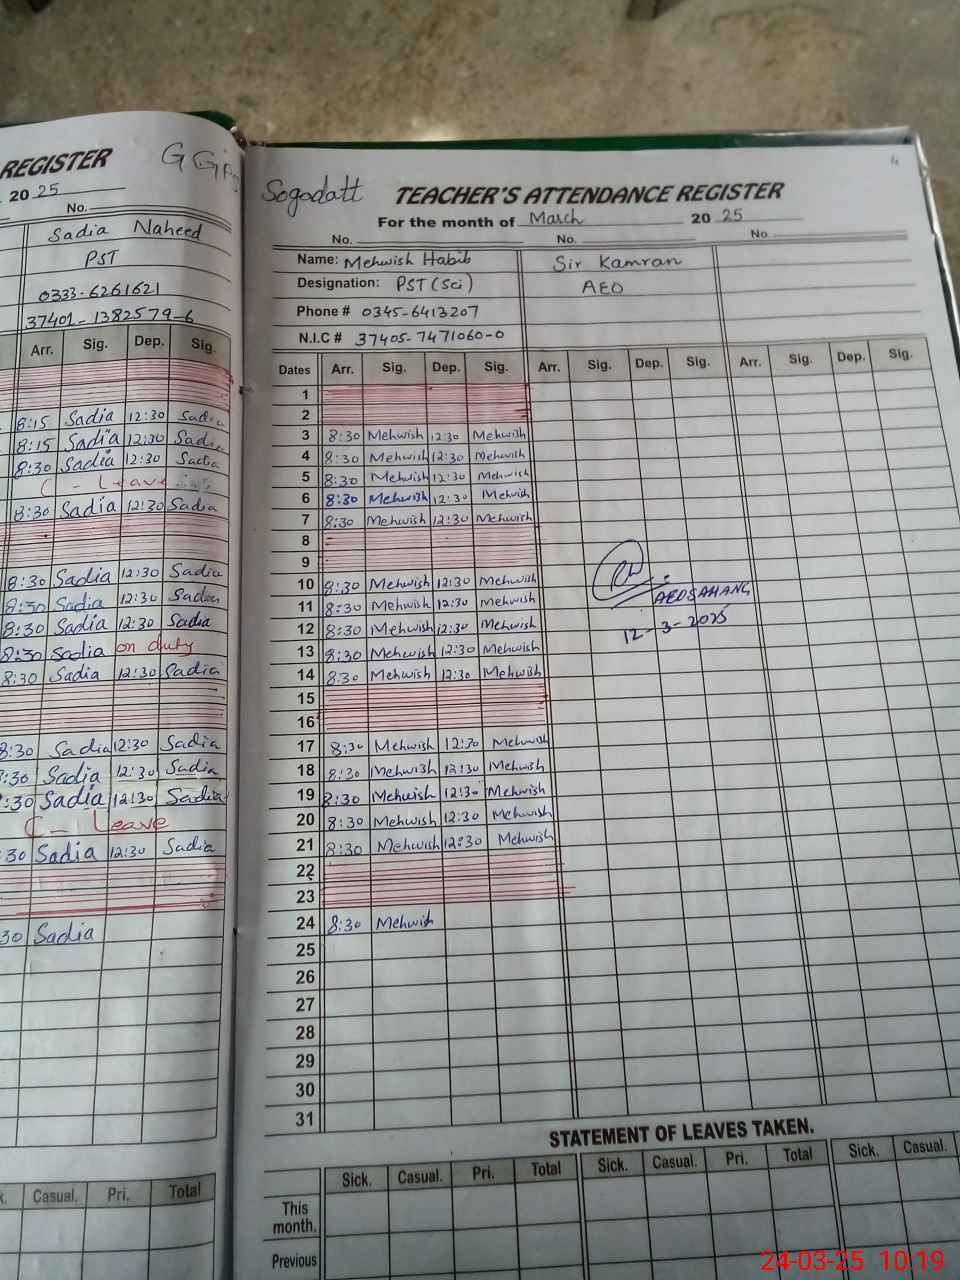 REGISTER
2025
No.
Sadia Naheed
PST
0333-6261621
37401-1382579-6
Arr. Sig. Dep. Sig.
8:15 Sadia 12:30 Sadia
8:15 Sadia 12:30 Sadia
8:30 Sadia 12:30 Sadia
C - Leave
8:30 Sadia 12:30 Sadia
8:30 Sadia 12:30 Sadia
8:30 Sadia 12:30 Sadia
8:30 Sadia 12:30 Sadia
8:30 Sadia on duty
8:30 Sadia 12:30 Sadia
8:30 Sadia 12:30 Sadia
:30 Sadia 12:30 Sadia
:30 Sadia 12:30 Sadia
C - Leave
30 Sadia 12:30 Sadia
30 Sadia
Casual. Pri. Total
Sogadatt TEACHER'S ATTENDANCE REGISTER
For the month of March 2025
No. No. No.
Name: Mehwish Habib Sir Kamran
Designation: PST (Sci) AEO
Phone # 0345-6413207
N.I.C # 37405-7471060-0
Dates Arr. Sig. Dep. Sig. Arr. Sig. Dep. Sig. Arr. Sig. Dep. Sig.
1
2
3 8:30 Mehwish 12:30 Mehwish
4 8:30 Mehwish 12:30 Mehwish
5 8:30 Mehwish 12:30 Mehwish
6 8:30 Mehwish 12:30 Mehwish
7 8:30 Mehwish 12:30 Mehwish
8
9
10 8:30 Mehwish 12:30 Mehwish
11 8:30 Mehwish 12:30 Mehwish AEOSAHANG
12 8:30 Mehwish 12:30 Mehwish 12-3-2025
13 8:30 Mehwish 12:30 Mehwish
14 8:30 Mehwish 12:30 Mehwish
15
16
17 8:30 Mehwish 12:30 Mehwish
18 8:30 Mehwish 12:30 Mehwish
19 8:30 Mehwish 12:30 Mehwish
20 8:30 Mehwish 12:30 Mehwish
21 8:30 Mehwish 12:30 Mehwish
22
23
24 8:30 Mehwish
25
26
27
28
29
30
31
STATEMENT OF LEAVES TAKEN.
Sick. Casual. Pri. Total Sick. Casual. Pri. Total Sick. Casual.
This month.
Previous
24-03-25 10:19